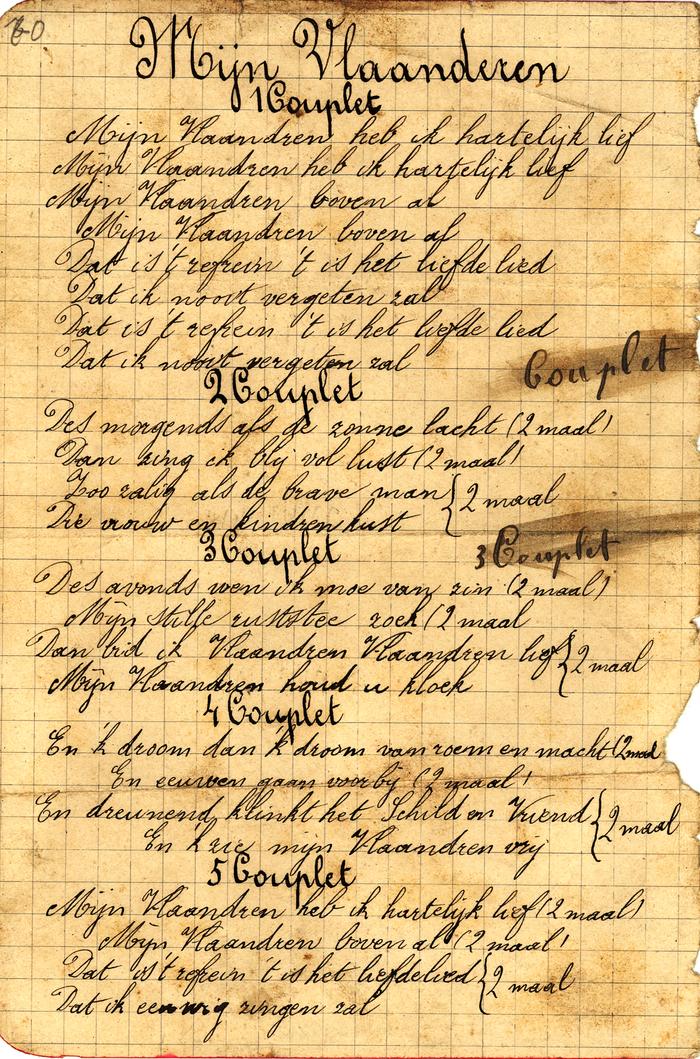 60
Mijn Vlaanderen
1 Couplet
Mijn Vlaandren heb ik hartelijk lief
Mijn Vlaandren heb ik hartelijk lief
Mijn Vlaandren boven al
Mijn Vlaandren boven al
Dat is 't refrein 't is het liefde lied
Dat ik nooit vergeten zal
Dat is 't refrein 't is het liefde lied
Dat ik nooit vergeten zal
Couplet
2 Couplet
Des morgends als de zonne lacht (2 maal)
Dan zing ik blij vol lust (2 maal)
Zoo zalig als de brave man { 2 maal
Die vrouw en kindren kust
3 Couplet
3 Couplet
Des avonds wen ik moe van zin (2 maal)
Mijn stille ruststee zoek (2 maal
Dan bid ik Vlaandren Vlaandren lief { 2 maal
Mijn Vlaandren houd u kloek
4 Couplet
En 'k droom dan 'k droom van roem en macht (2 maal
En eeuwen gaan voorbij (2 maal)
En dreunend klinkt het Schild en Vriend { 2 maal
En 'k zie mijn Vlaandren vrij
5 Couplet
Mijn Vlaandren heb ik hartelijk lief (2 maal)
Mijn Vlaandren boven al (2 maal)
Dat is 't refrein 't is het liefdelied { 2 maal
Dat ik eeuwig zingen zal